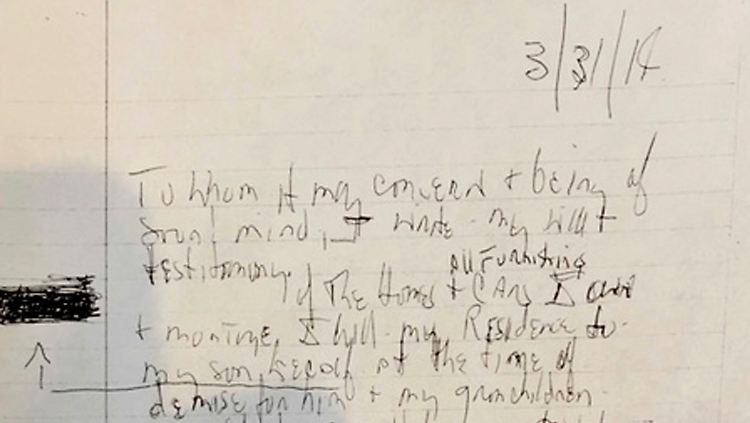 3/31/14
To whom it may concern & being of
sound mind, I write my will &
testimony. all Furnishing
of The Homes & CARS I own
+ mortage, I will my Residence to
my son, at the time of
demise for him + my granchildren